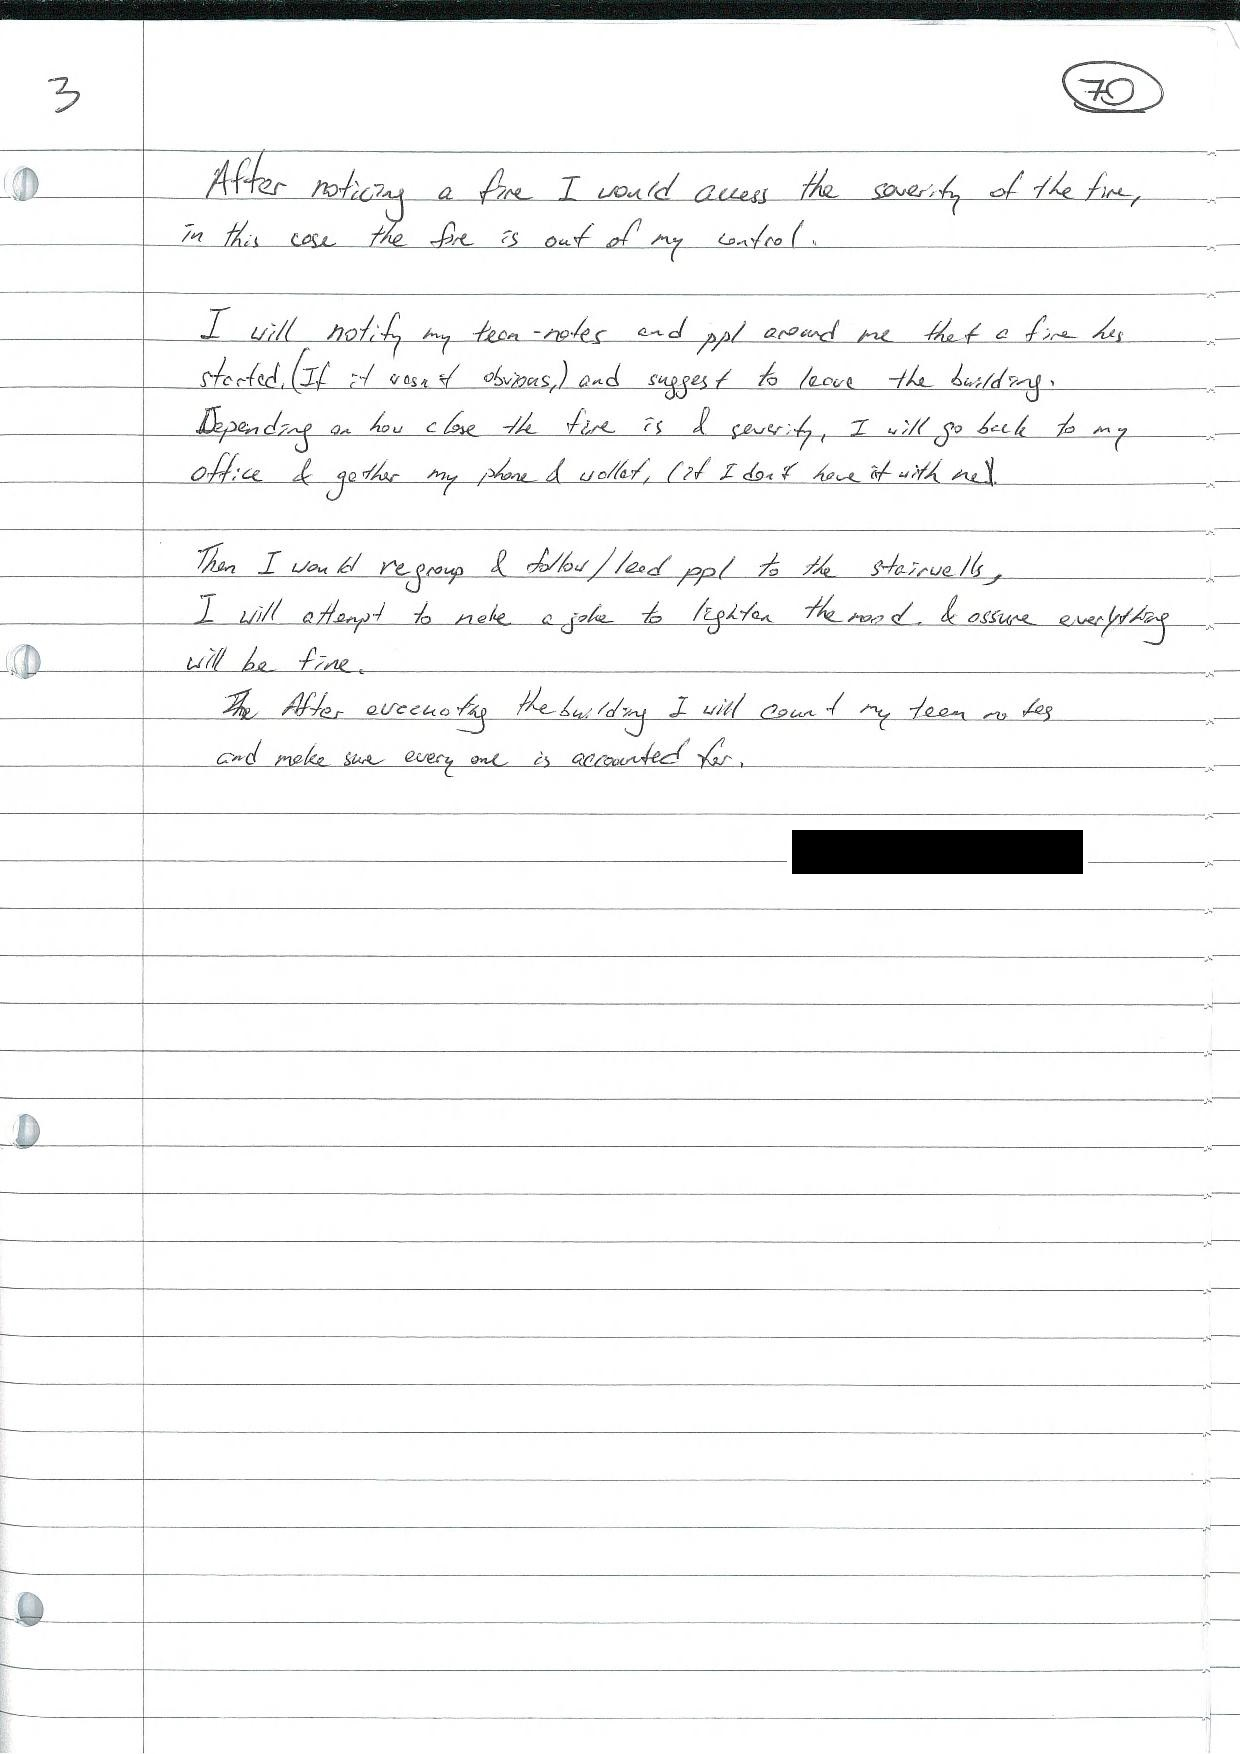 3
70
After noticing a fire I would access the severity of the fire,
in this case the fire is out of my control.
I will notify my team-mates and ppl around me that a fire has
started. (If it wasn't obvious,) and suggest to leave the building.
Depending on how close the fire is & severity, I will go back to my
office & gather my phone & wallet, (if I don't have it with me).
Then I would regroup & follow/lead ppl to the stairwells,
I will attempt to make a joke to lighten the mood. & assure everything
will be fine.
After evacuating the building I will count my team mates
and make sure every one is accounted for.